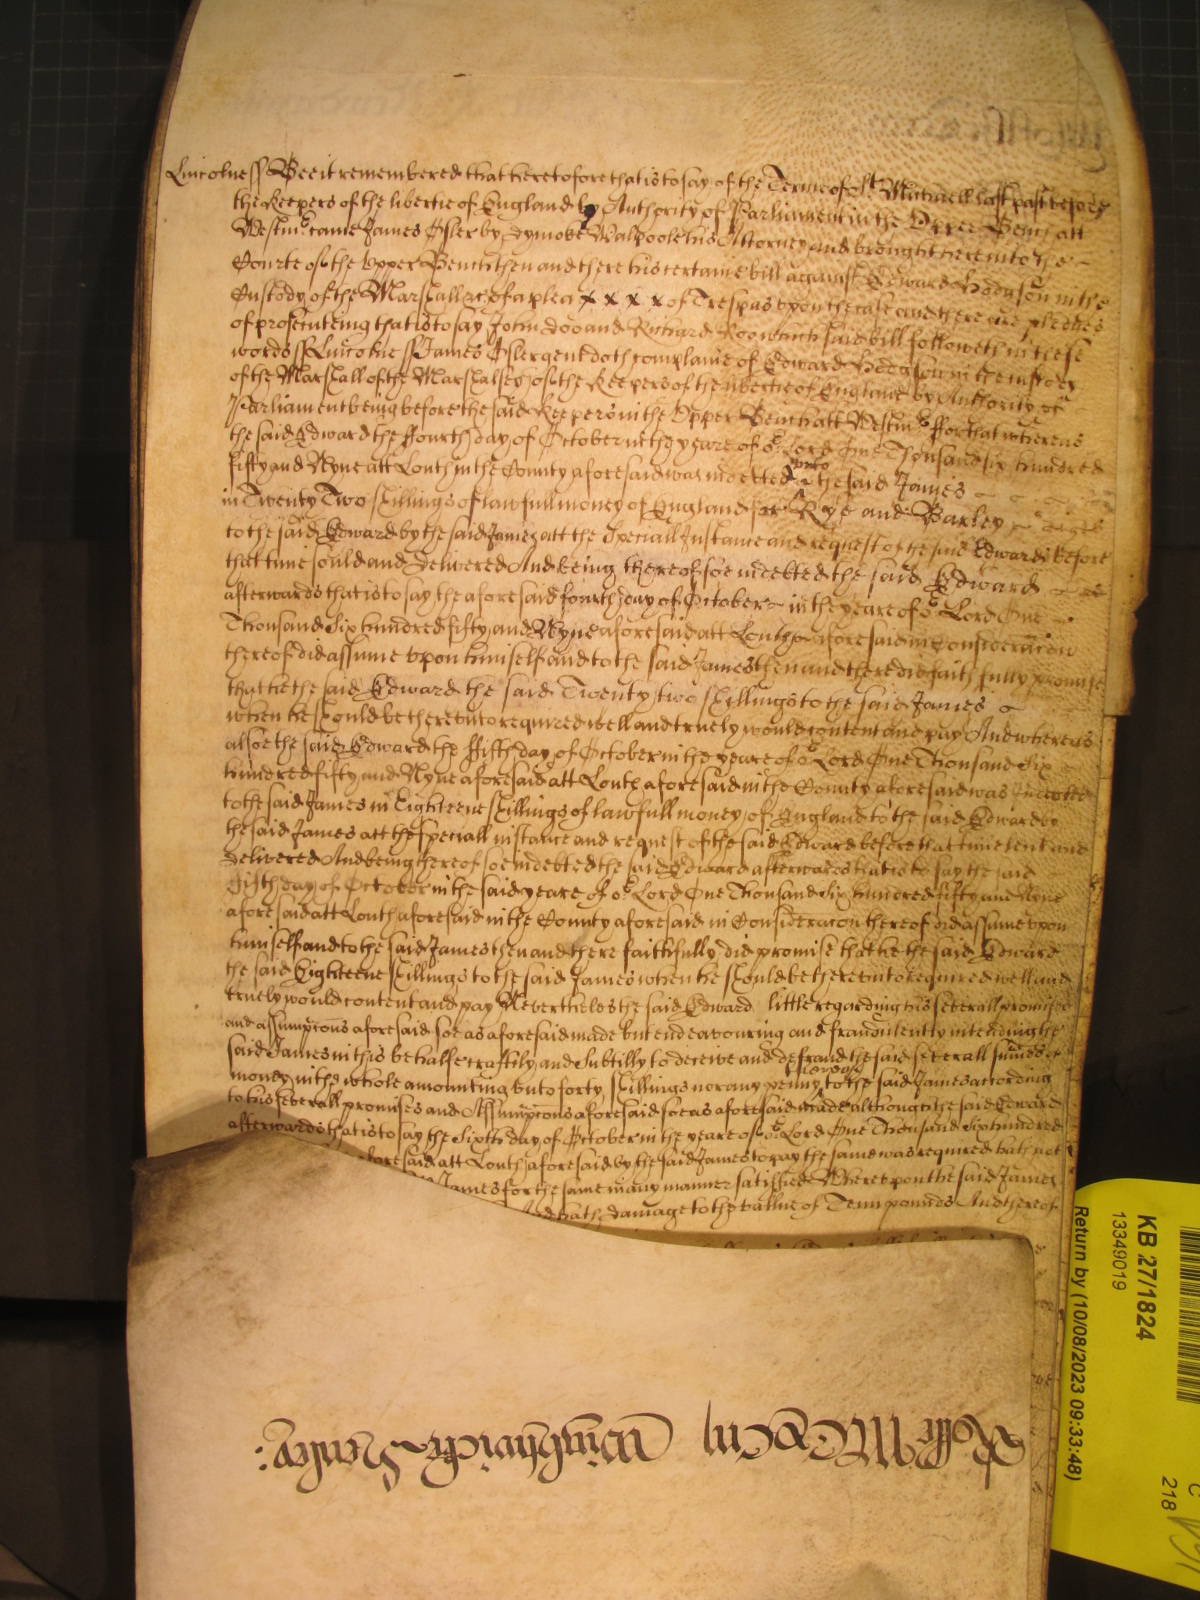 Lincolne ss Bee it remembered that heretofore that is to say of the Terme of St Michaell last past before
the Keepers of the libertie of England by Authority of Parliament in the Upper Bench att
Westmr came James Isler by Dymoke Walpoole his Attorney and brought here into the
Courte of the Upper Bench then and there his certaine bill against Edward Hodgson in the
Custody of the Marshall &c of a plea x x x x of Trespas upon the case and there are pledges
of prosecuteing that is to say John Doo and Richard Roo which said bill followeth in these
words ss Lincolne ss James Isler gent doth complaine of Edward Hodgson in the custody
of the Marshall of the Marshalsey of the Keepers of the libertie of England by Authority of
Parliament being before the said Keepers in the Upper Bench att Westmr ffor that whereas
the said Edward the ffourth day of October in the yeare of or Lord One Thousand six hundred
fifty and Nyne att Louth in the County aforesaid was indetted unto the said James
in Twenty Two shillings of lawfull money of England for Rye and Barley
to the said Edward by the said James att the Speciall Instance and request of the said Edward before
that time sould and delivered And being thereof soe indebted the said Edward
afterwards that is to say the aforesaid fourth day of October in the yeare of or Lord One
Thousand Six hundred fifty and Nyne aforesaid att Louth aforesaid in Consideracon
thereof did assume upon himself and to the said James then and there did faithfully promise
that he the said Edward the said Twenty two shillings to the said James
when he should be thereunto required well and truely would content and pay And whereas
alsoe the said Edward the ffifth day of October in the yeare of or Lord One Thousand Six
hundred fifty and Nyne aforesaid att Louth aforesaid in the County aforesaid was Indebted
to the said James in Eighteene shillings of lawfull money of England to the said Edward by
the said James att the speciall instance and request of the said Edward before that time lent and
delivered And being thereof soe indebted the said Edward afterwards that is to say the said
ffifth day of October in the said yeare of or Lord One Thousand Six hundred fifty and Nyne
aforesaid att Louth aforesaid in the County aforesaid in Consideracon thereof did assume upon
himself and to the said James then and there faithfully did promise that he the said Edward
the said Eighteene shillings to the said James when he should be thereunto required well and
truely would content and pay Neverthelesse the said Edward little regarding his severall promises
and assumpcons aforesaid soe as aforesaid made but endeavouring and fraudulently intending the
said James in this behalfe craftily and Subtilly to deceive and defraud the said severall summes of
money in the whole amounting unto forty shillings nor any penny thereof to the said James according
to his severall promises and Assumpcons aforesaid soe as aforesaid made although the said Edward
afterwards that is to say the Sixth day of October in the yeare of or Lord One Thousand Six hundred
aforesaid att Louth aforesaid by the said James to pay the same was required hath not
James for the same in any manner satisfied Whereupon the said James
and hath damage to the vallue of Tenn pounds And thereof
KB 27/1824
13349019
Return by (10/08/2023 09:33:48)
218